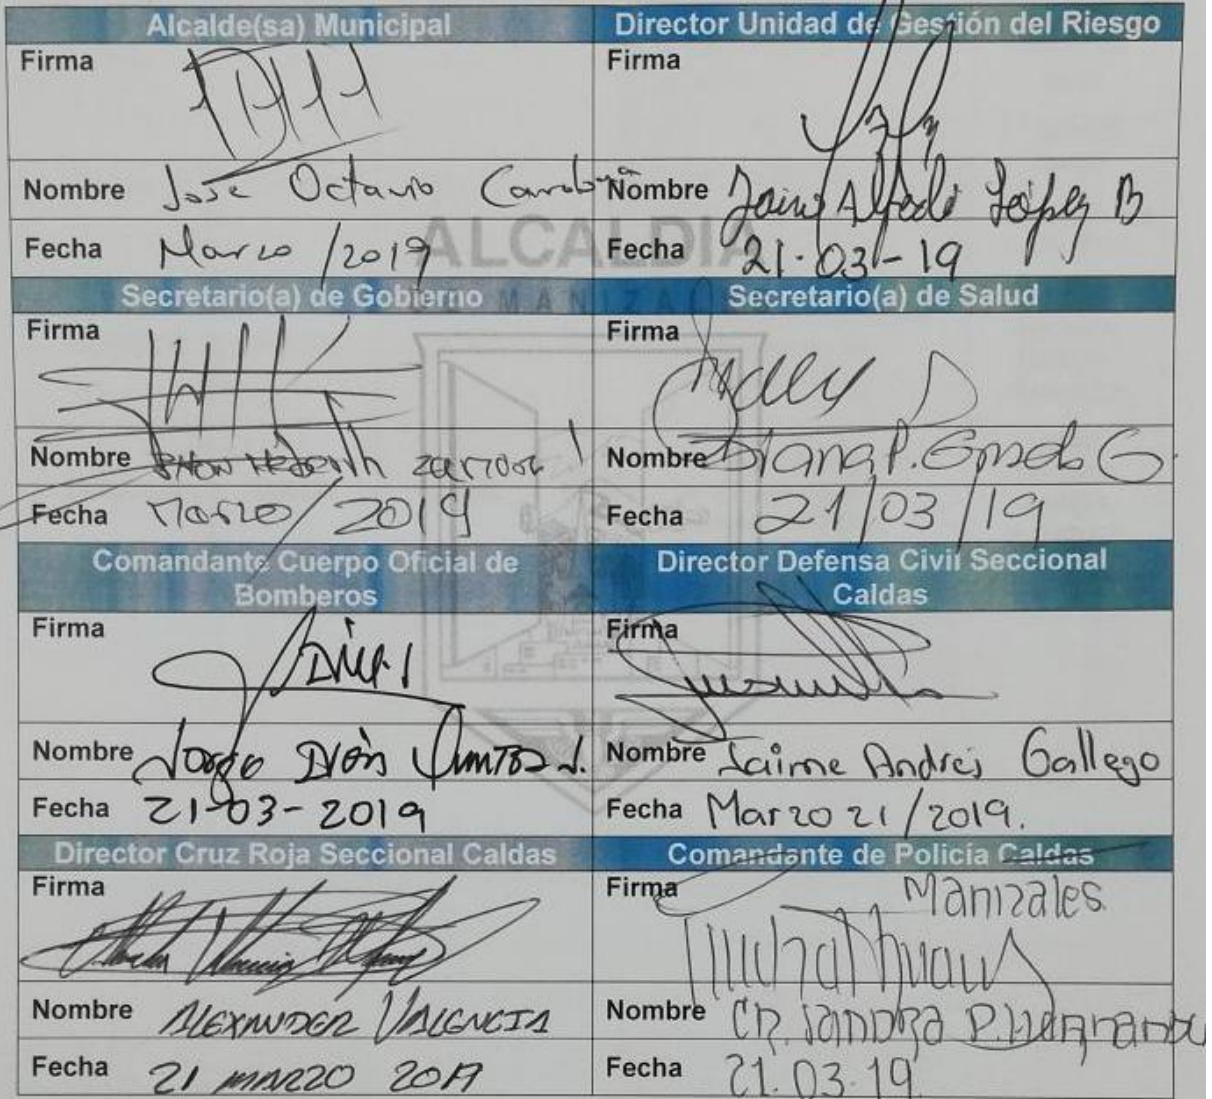 Alcalde(sa) Municipal
Director Unidad de Gestión del Riesgo
Firma
Firma
Nombre Jose Octavio
Nombre Jaime Alfredo López B
Fecha Marzo /2019
Fecha 21-03-19
ALCALDIA
DE MANIZALES
Secretario(a) de Gobierno
Secretario(a) de Salud
Firma
Firma
Nombre
Nombre Diana P. G
Fecha Marzo / 2019
Fecha 21/03/19
Comandante Cuerpo Oficial de
Bomberos
Director Defensa Civil Seccional
Caldas
Firma
Firma
Nombre Jorge Iván J.
Nombre Jaime Andrés Gallego
Fecha 21-03-2019
Fecha Marzo 21/2019.
Director Cruz Roja Seccional Caldas
Comandante de Policía Caldas
Manizales
Firma
Firma
Nombre ALEXANDER VALENCIA
Nombre CR. Sandra P.
Fecha 21 MARZO 2019
Fecha 21.03.19